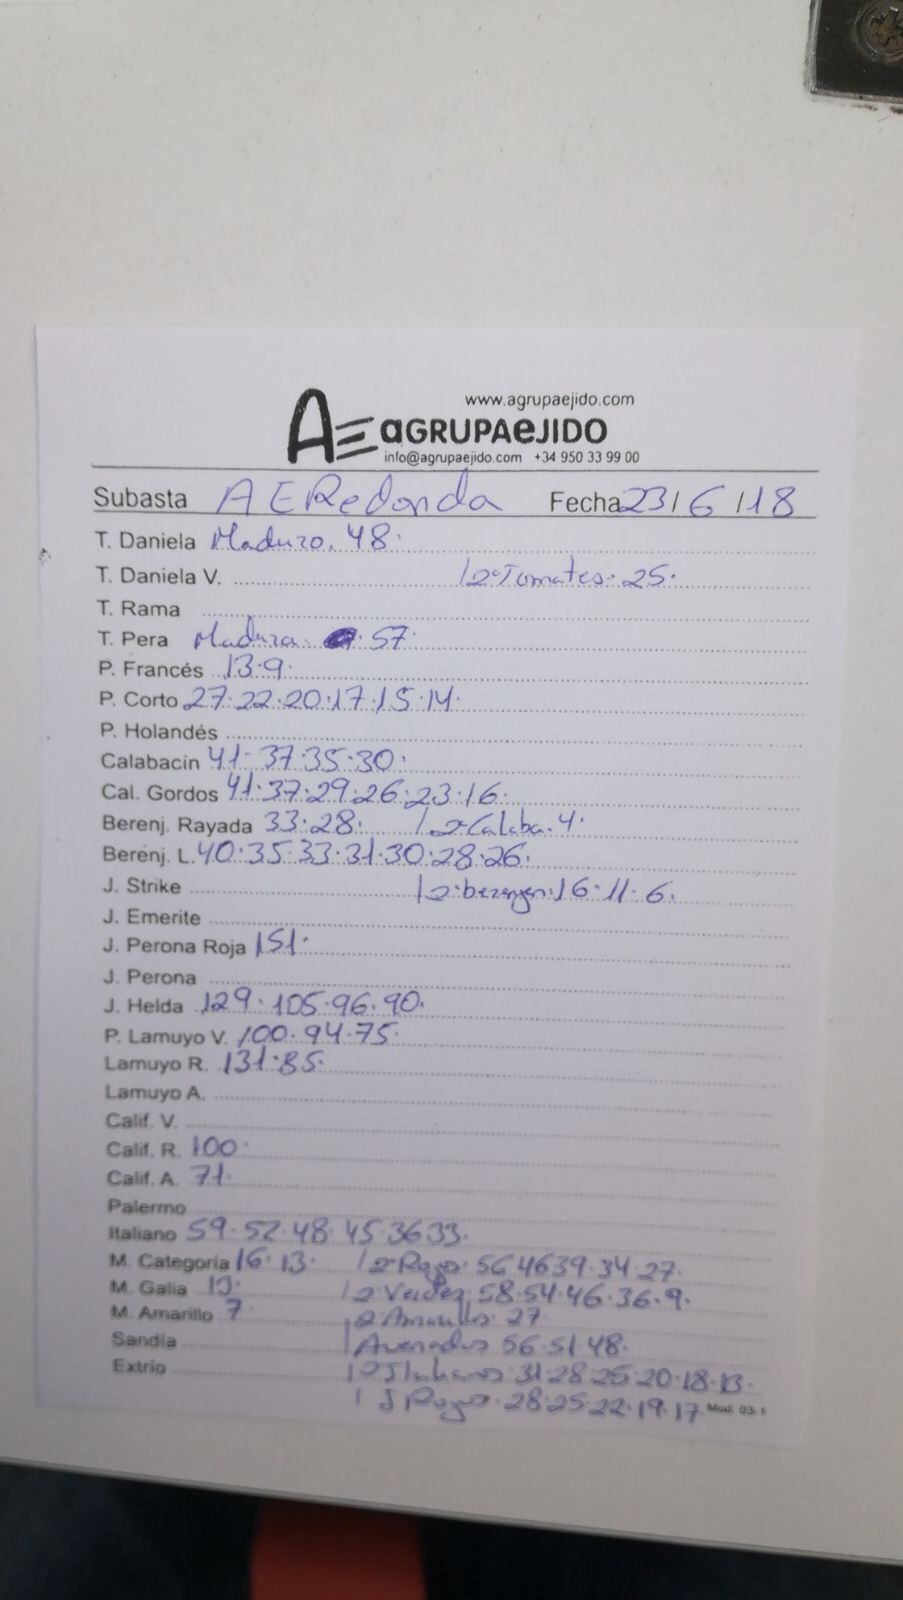 www.agrupaejido.com
AE aGRUPAeJIDO
info@agrupaejido.com +34 950 33 99 00
Subasta AERedonda Fecha 23/6/18
T. Daniela Maduro. 48.
T. Daniela V. 2ºTomates. 25.
T. Rama
T. Pera Madura. 57
P. Francés 13.9.
P. Corto 27.22.20.17.15.14.
P. Holandés
Calabacín 41.37.35.30.
Cal. Gordos 41.37.29.26.23.16.
Berenj. Rayada 33.28. 2ºCalaba. 4.
Berenj. L. 40.35.33.31.30.28.26.
J. Strike 2ºberengen. 16.11.6.
J. Emerite
J. Perona Roja 151.
J. Perona
J. Helda 129.105.96.90.
P. Lamuyo V. 100.94.75.
Lamuyo R. 131.85.
Lamuyo A.
Calif. V.
Calif. R. 100
Calif. A. 71.
Palermo
Italiano 59.52.48.45.36 33.
M. Categoría 16.13. 2ºRojo. 56 46 39.34.27.
M. Galia 2 Verdes. 58.54.46.36.9.
M. Amarillo 7. 2 Amarillo. 27
Sandía 56.51.48.
Extrío 2ºItalianos. 31.28.25.20.18.13.
Rojos. 28.25.22.19.17 Mod. 03-1